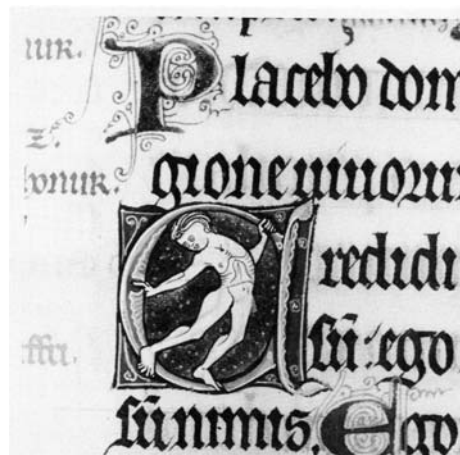 Placebo dom
gione uiuoru
Credidi
sũ: ego
sũ nimis. Ego